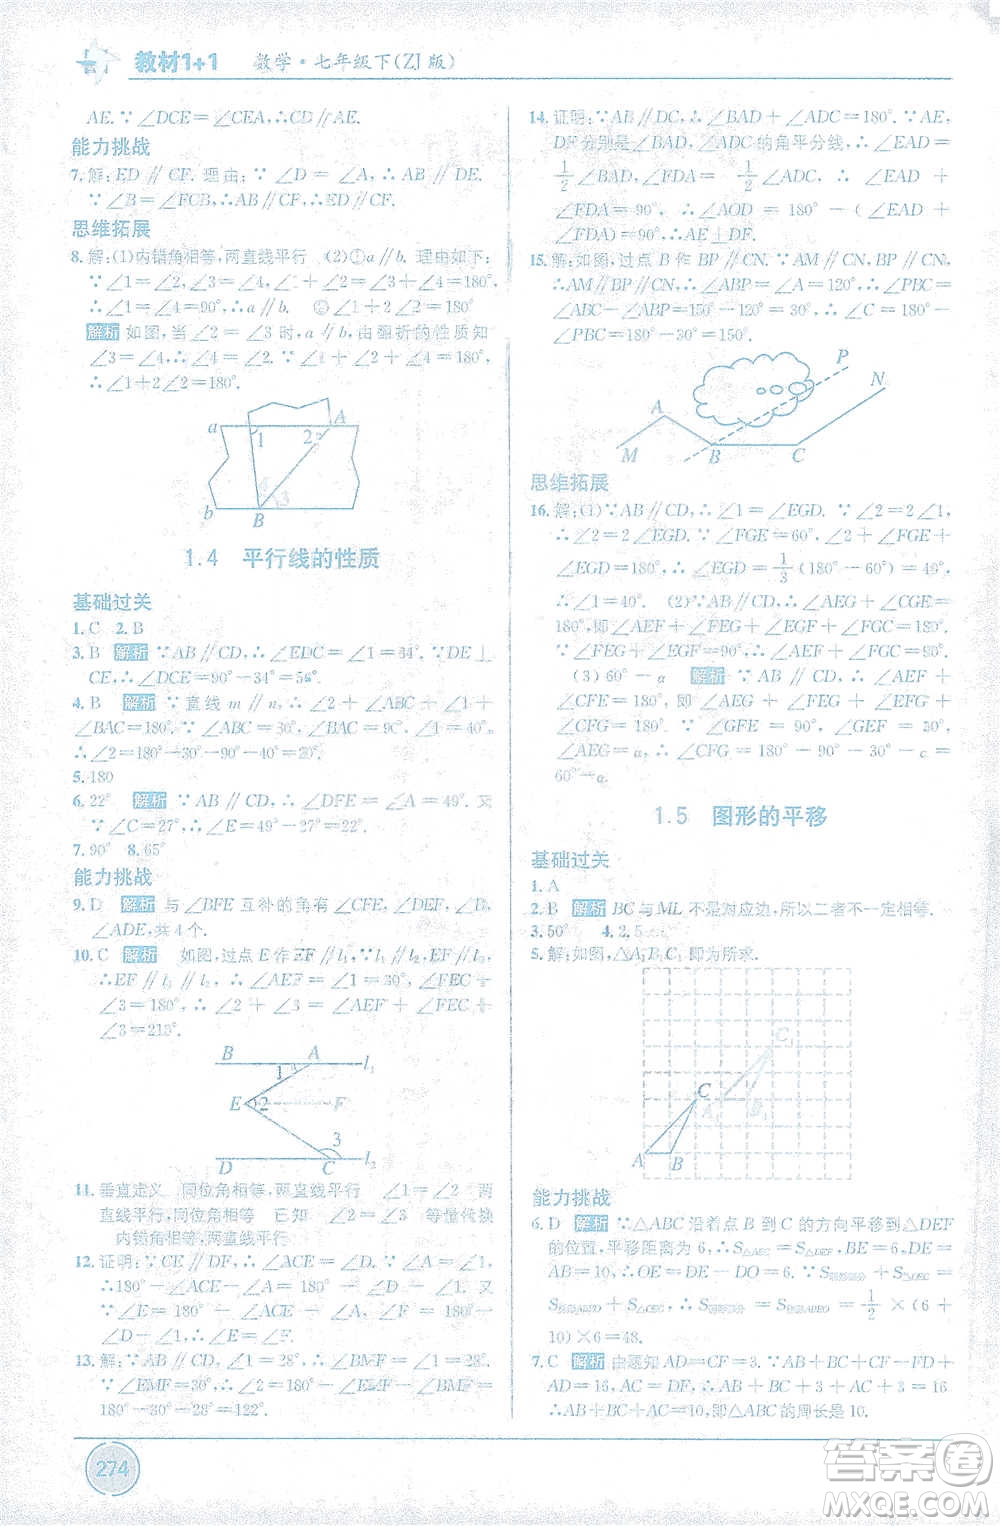 教材1+1 数学·七年级下(ZJ版)
AE.∵∠DCE=∠CEA,∴CD∥AE.
能力挑战
7.解:ED∥CF.理由:∵∠D=∠A,∴AB∥DE.
∵∠B=∠FCB,∴AB∥CF,∴ED∥CF.
思维拓展
8.解:(1)内错角相等,两直线平行 (2)①a∥b.理由如下:
∵∠1=∠2=∠3=∠4,∠1+∠2=180°,
∴∠1=∠4=90°,∴a∥b. ②∠1+∠2=180°
解析 如图,当∠2=∠3时,a∥b,由翻折的性质知
∠3=∠4,∴∠4=∠2.∵∠1+∠3+∠4=180°,
∴∠1+2∠2=180°.
A
a
1
2
4
3
b
B
1.4 平行线的性质
基础过关
1.C 2.B
3.B 解析 ∵AB∥CD,∴∠EDC=∠1=34°.∵DE⊥
CE,∴∠DCE=90°-34°=56°.
4.B 解析 ∵直线m∥n,∴∠2+∠ABC+∠1+
∠BAC=180°.∵∠ABC=30°,∠BAC=90°,∠1=40°,
∴∠2=180°-30°-90°-40°=20°.
5.180
6.22° 解析 ∵AB∥CD,∴∠DFE=∠A=49°.又
∵∠C=27°,∴∠E=49°-27°=22°.
7.90° 8.65°
能力挑战
9.D 解析 与∠BFE互补的角有∠CFE,∠DEF,∠B,
∠ADE,共4个.
10.C 解析 如图,过点E作EF∥l₁.∵l₁∥l₂,EF∥l₁,
∴EF∥l₁∥l₂,∴∠1=∠AEF=30°,∠FEC+
∠3=180°,∴∠2+∠3=∠AEF+∠FEC+
∠3=210°.
B A l₁
1
E 2 F
3
D C l₂
11.垂直定义 同位角相等,两直线平行 ∠1=∠2 两
直线平行,同位角相等 已知 ∠1=∠3 等量代换
内错角相等,两直线平行
12.证明:∵CE∥DF,∴∠ACE=∠D.∵∠A=∠1,
∴180°-∠ACE-∠A=180°-∠D-∠1.又
∵∠E=180°-∠ACE-∠A,∠F=180°-
∠D-∠1,∴∠E=∠F.
13.解:∵AB∥CD,∠1=28°,∴∠BMF=∠1=28°.
∵∠EMF=30°,∴∠2=180°-∠EMF-∠BMF=
180°-30°-28°=122°.
14.证明:∵AB∥DC,∴∠BAD+∠ADC=180°.∵AE,
DF分别是∠BAD,∠ADC的角平分线,∴∠EAD=
1/2∠BAD,∠FDA=1/2∠ADC,∴∠EAD+
∠FDA=90°,∴∠AOD=180°-(∠EAD+
∠FDA)=90°,∴AE⊥DF.
15.解:如图,过点B作BP∥CN.∵AM∥CN,
∴AM∥BP∥CN,∴∠ABP=∠A=120°,∴∠C+
∠PBC=180°,∴∠PBC=150°-120°=30°,∴∠C=
180°-∠PBC=180°-30°=150°.
P
N
A
M
B
C
思维拓展
16.解:(1)∵AB∥CD,∴∠1=∠EGD.∵∠2=2∠1,
∴∠2=2∠EGD.又∵∠FGE=60°,∠2+∠FGE+
∠EGD=180°,∴∠EGD=1/3(180°-60°)=40°,
∴∠1=40°. (2)∵AB∥CD,∴∠AEG+∠CGE=
180°,即∠AEF+∠FEG+∠EGF+∠FGC=180°.
又∵∠FEG+∠EGF=90°,∴∠AEF+∠FGC=90°.
(3)60°-α 解析 ∵AB∥CD,∴∠AEF+
∠CFE=180°,即∠AEG+∠FEG+∠EFG+
∠CFG=180°.∵∠GFE=90°,∠GEF=30°,
∠AEG=α,∴∠CFG=180°-90°-30°-α=
60°-α.
1.5 图形的平移
基础过关
1.A
2.B 解析 BC与ML不是对应边,所以二者不一定相等.
3.50° 4.2,5
5.解:如图,△A₁B₁C₁即为所求.
C₁
C
A₁ B₁
A B
能力挑战
6.D 解析 ∵△ABC沿着点B到C的方向平移到△DEF
的位置,平移距离为6,∴S△ABC=S△DEF,BE=6,DE=
AB=10,∴OE=DE-DO=6.∵S四边形ABEO+
S△OEC=S四边形ODFC+S△OEC,∴S四边形ODFC=S四边形ABEO=1/2×(6+
10)×6=48.
7.C 解析 由题知AD=CF=3.∵AB+BC+CF+DF+
AD=16,AC=DF,∴AB+BC+3+AC+3=16.
∴AB+BC+AC=10,即△ABC的周长是10.
274
答案圈
MXQE.COM